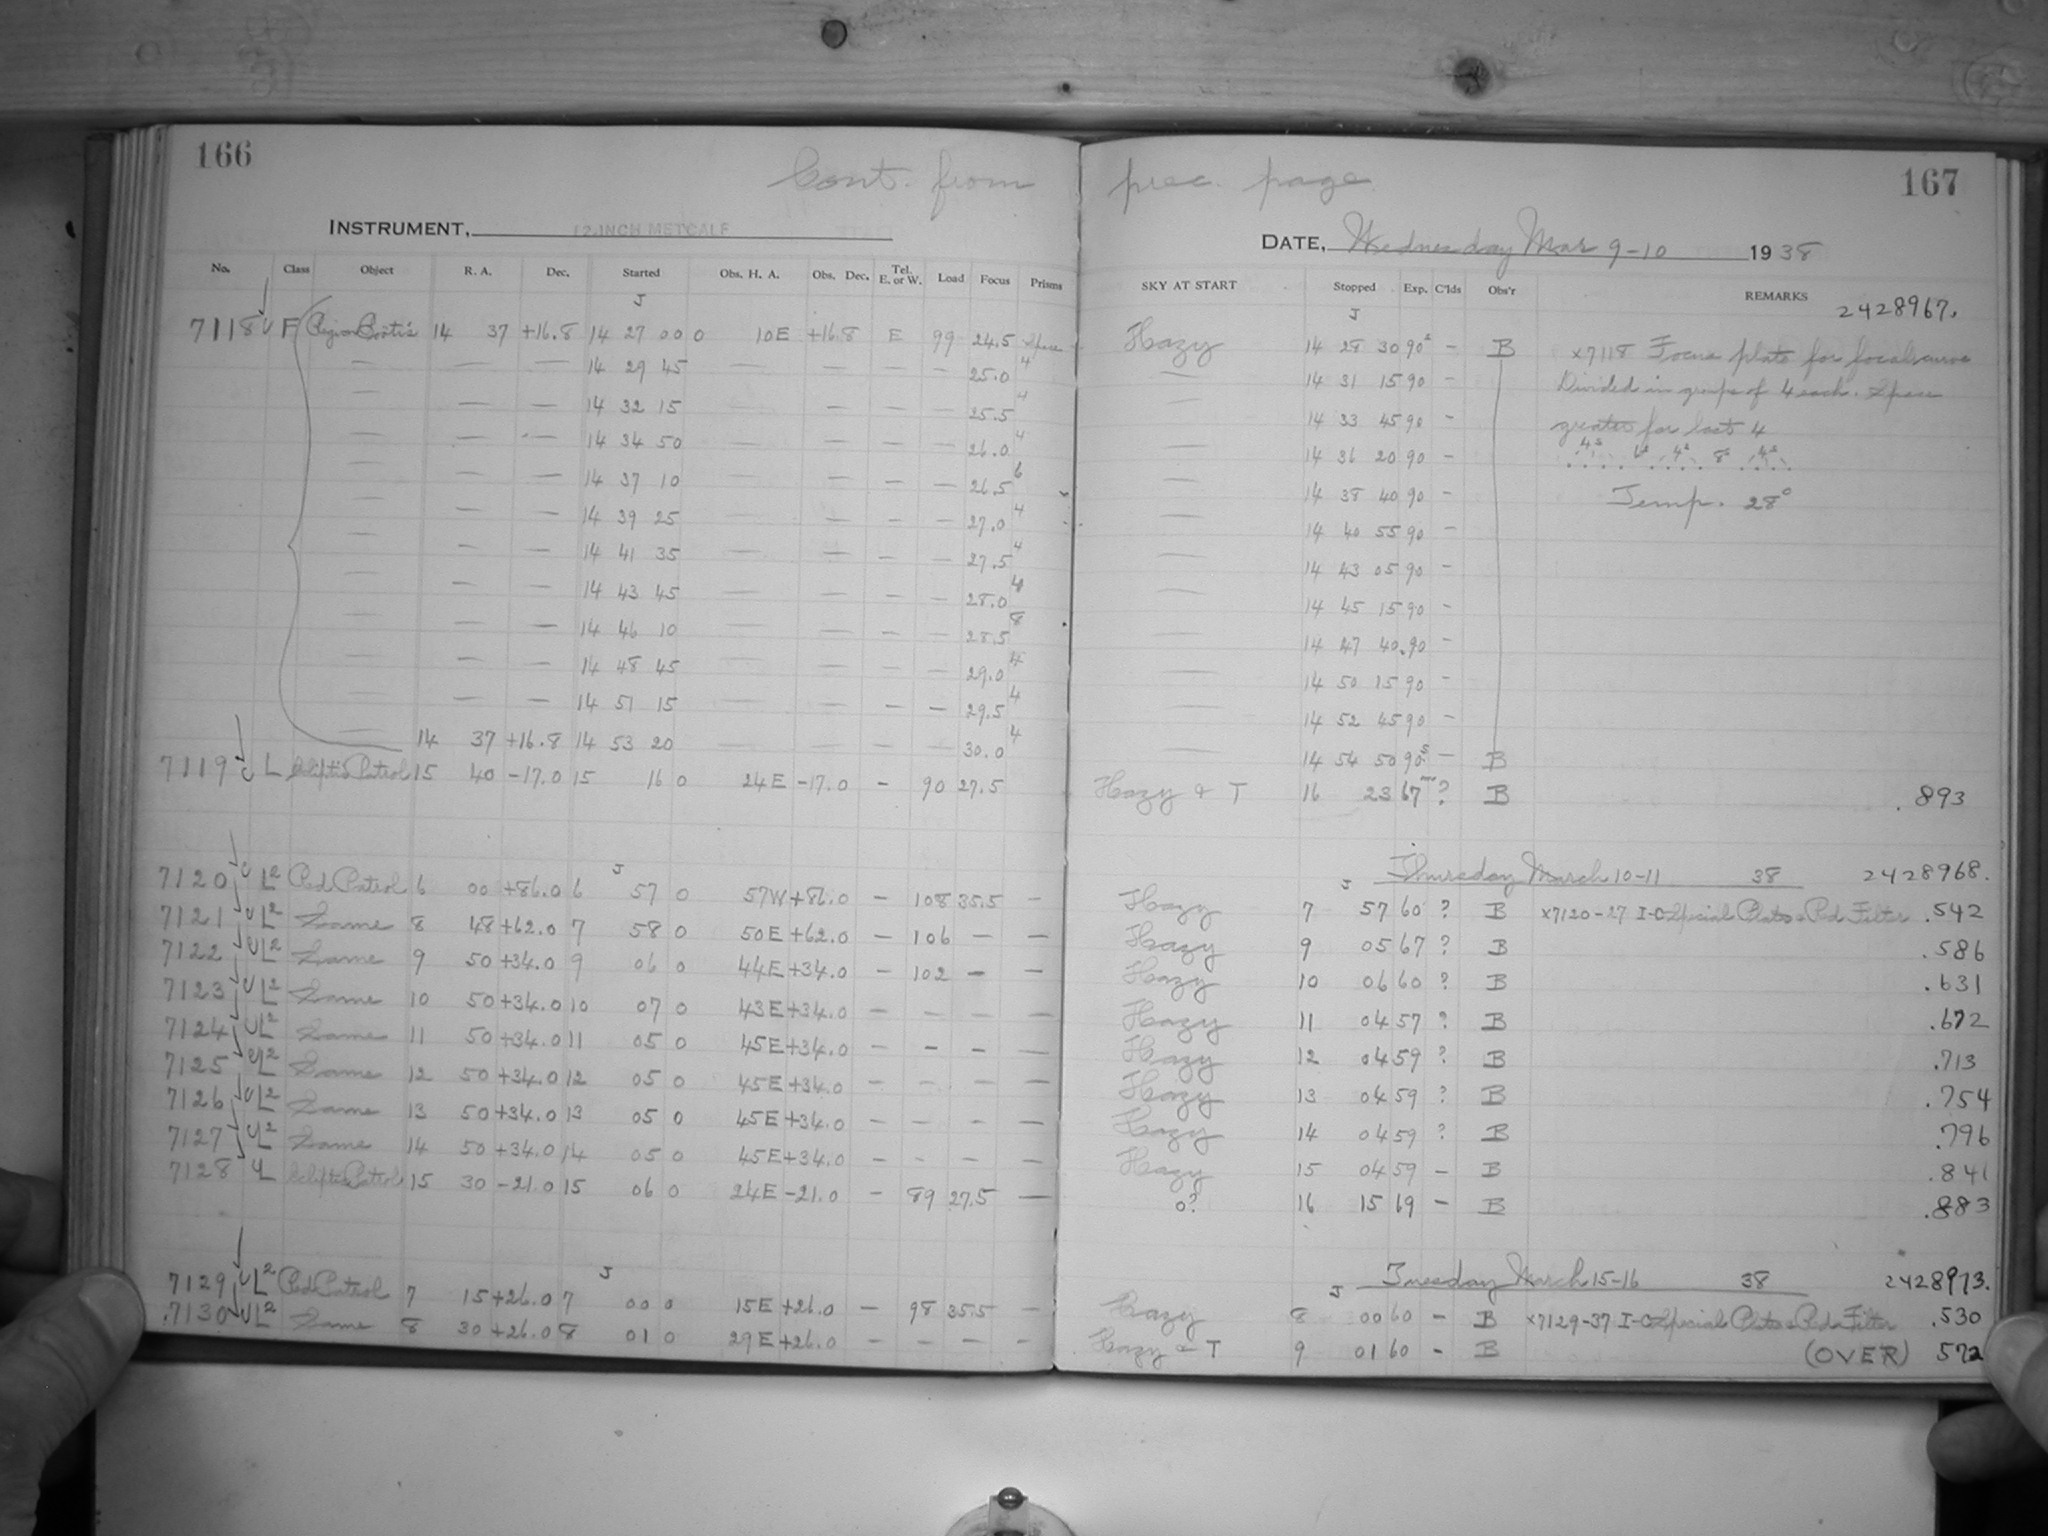 166
Cont. from prec. page
167
INSTRUMENT, 12-INCH METCALF
DATE, Wednesday Mar 9-10 1938
No. Class Object R. A. Dec. Started Obs. H. A. Obs. Dec. Tel. E. or W. Load Focus Prisms SKY AT START Stopped Exp. C'lds Obs'r REMARKS
J J 2428967.
7118 F Region Boötis 14 37 +16.8 14 27 00 0 10E +16.8 E 99 24.5 Space Hazy 14 28 30 90s - B x7118 Focus plate for focal curve
— — — 14 29 45 — — — — 25.0 4 — 14 31 15 90 - Divided in groups of 4 each. Space
— — — 14 32 15 — — — — 25.5 4 — 14 33 45 90 - greater for last 4
— — — 14 34 50 — — — — 26.0 4 — 14 36 20 90 - 4s 6s 4s 8s 4s
— — — 14 37 10 — — — — 26.5 6 — 14 38 40 90 - Temp. 28°
— — — 14 39 25 — — — — 27.0 4 — 14 40 55 90 -
— — — 14 41 35 — — — — 27.5 4 — 14 43 05 90 -
— — — 14 43 45 — — — — 28.0 4 — 14 45 15 90 -
— — — 14 46 10 — — — — 28.5 8 — 14 47 40 90 -
— — — 14 48 45 — — — — 29.0 4 — 14 50 15 90 -
— — — 14 51 15 — — — — 29.5 4 — 14 52 45 90 -
— 14 37 +16.8 14 53 20 — — — — 30.0 4 — 14 54 50 90s - B
7119 L Ecliptic Patrol 15 40 -17.0 15 16 0 24E -17.0 - 90 27.5 Hazy & T 16 23 67m ? B .893
J J Thursday March 10-11 38 2428968.
7120 UL2 Red Patrol 6 00 +86.0 6 57 0 57W +86.0 - 108 35.5 - Hazy 7 57 60 ? B x7120-27 I-C Special Plate & Red Filter .542
7121 UL2 Same 8 48 +62.0 7 58 0 50E +62.0 - 106 - - Hazy 9 05 67 ? B .586
7122 UL2 Same 9 50 +34.0 9 06 0 44E +34.0 - 102 - - Hazy 10 06 60 ? B .631
7123 UL2 Same 10 50 +34.0 10 07 0 43E +34.0 - - - - Hazy 11 04 57 ? B .672
7124 UL2 Same 11 50 +34.0 11 05 0 45E +34.0 - - - - Hazy 12 04 59 ? B .713
7125 UL2 Same 12 50 +34.0 12 05 0 45E +34.0 - - - - Hazy 13 04 59 ? B .754
7126 UL2 Same 13 50 +34.0 13 05 0 45E +34.0 - - - - Hazy 14 04 59 ? B .796
7127 UL2 Same 14 50 +34.0 14 05 0 45E +34.0 - - - - Hazy 15 04 59 - B .841
7128 UL Ecliptic Patrol 15 30 -21.0 15 06 0 24E -21.0 - 89 27.5 - 0? 16 15 69 - B .883
J J Tuesday March 15-16 38 2428973.
7129 UL2 Red Patrol 7 15 +26.0 7 00 0 15E +26.0 - 98 35.5 - Hazy 8 00 60 - B x7129-37 I-C Special Plate & Red Filter .530
7130 UL2 Same 8 30 +26.0 8 01 0 29E +26.0 - - - - Hazy & T 9 01 60 - B (OVER) 572